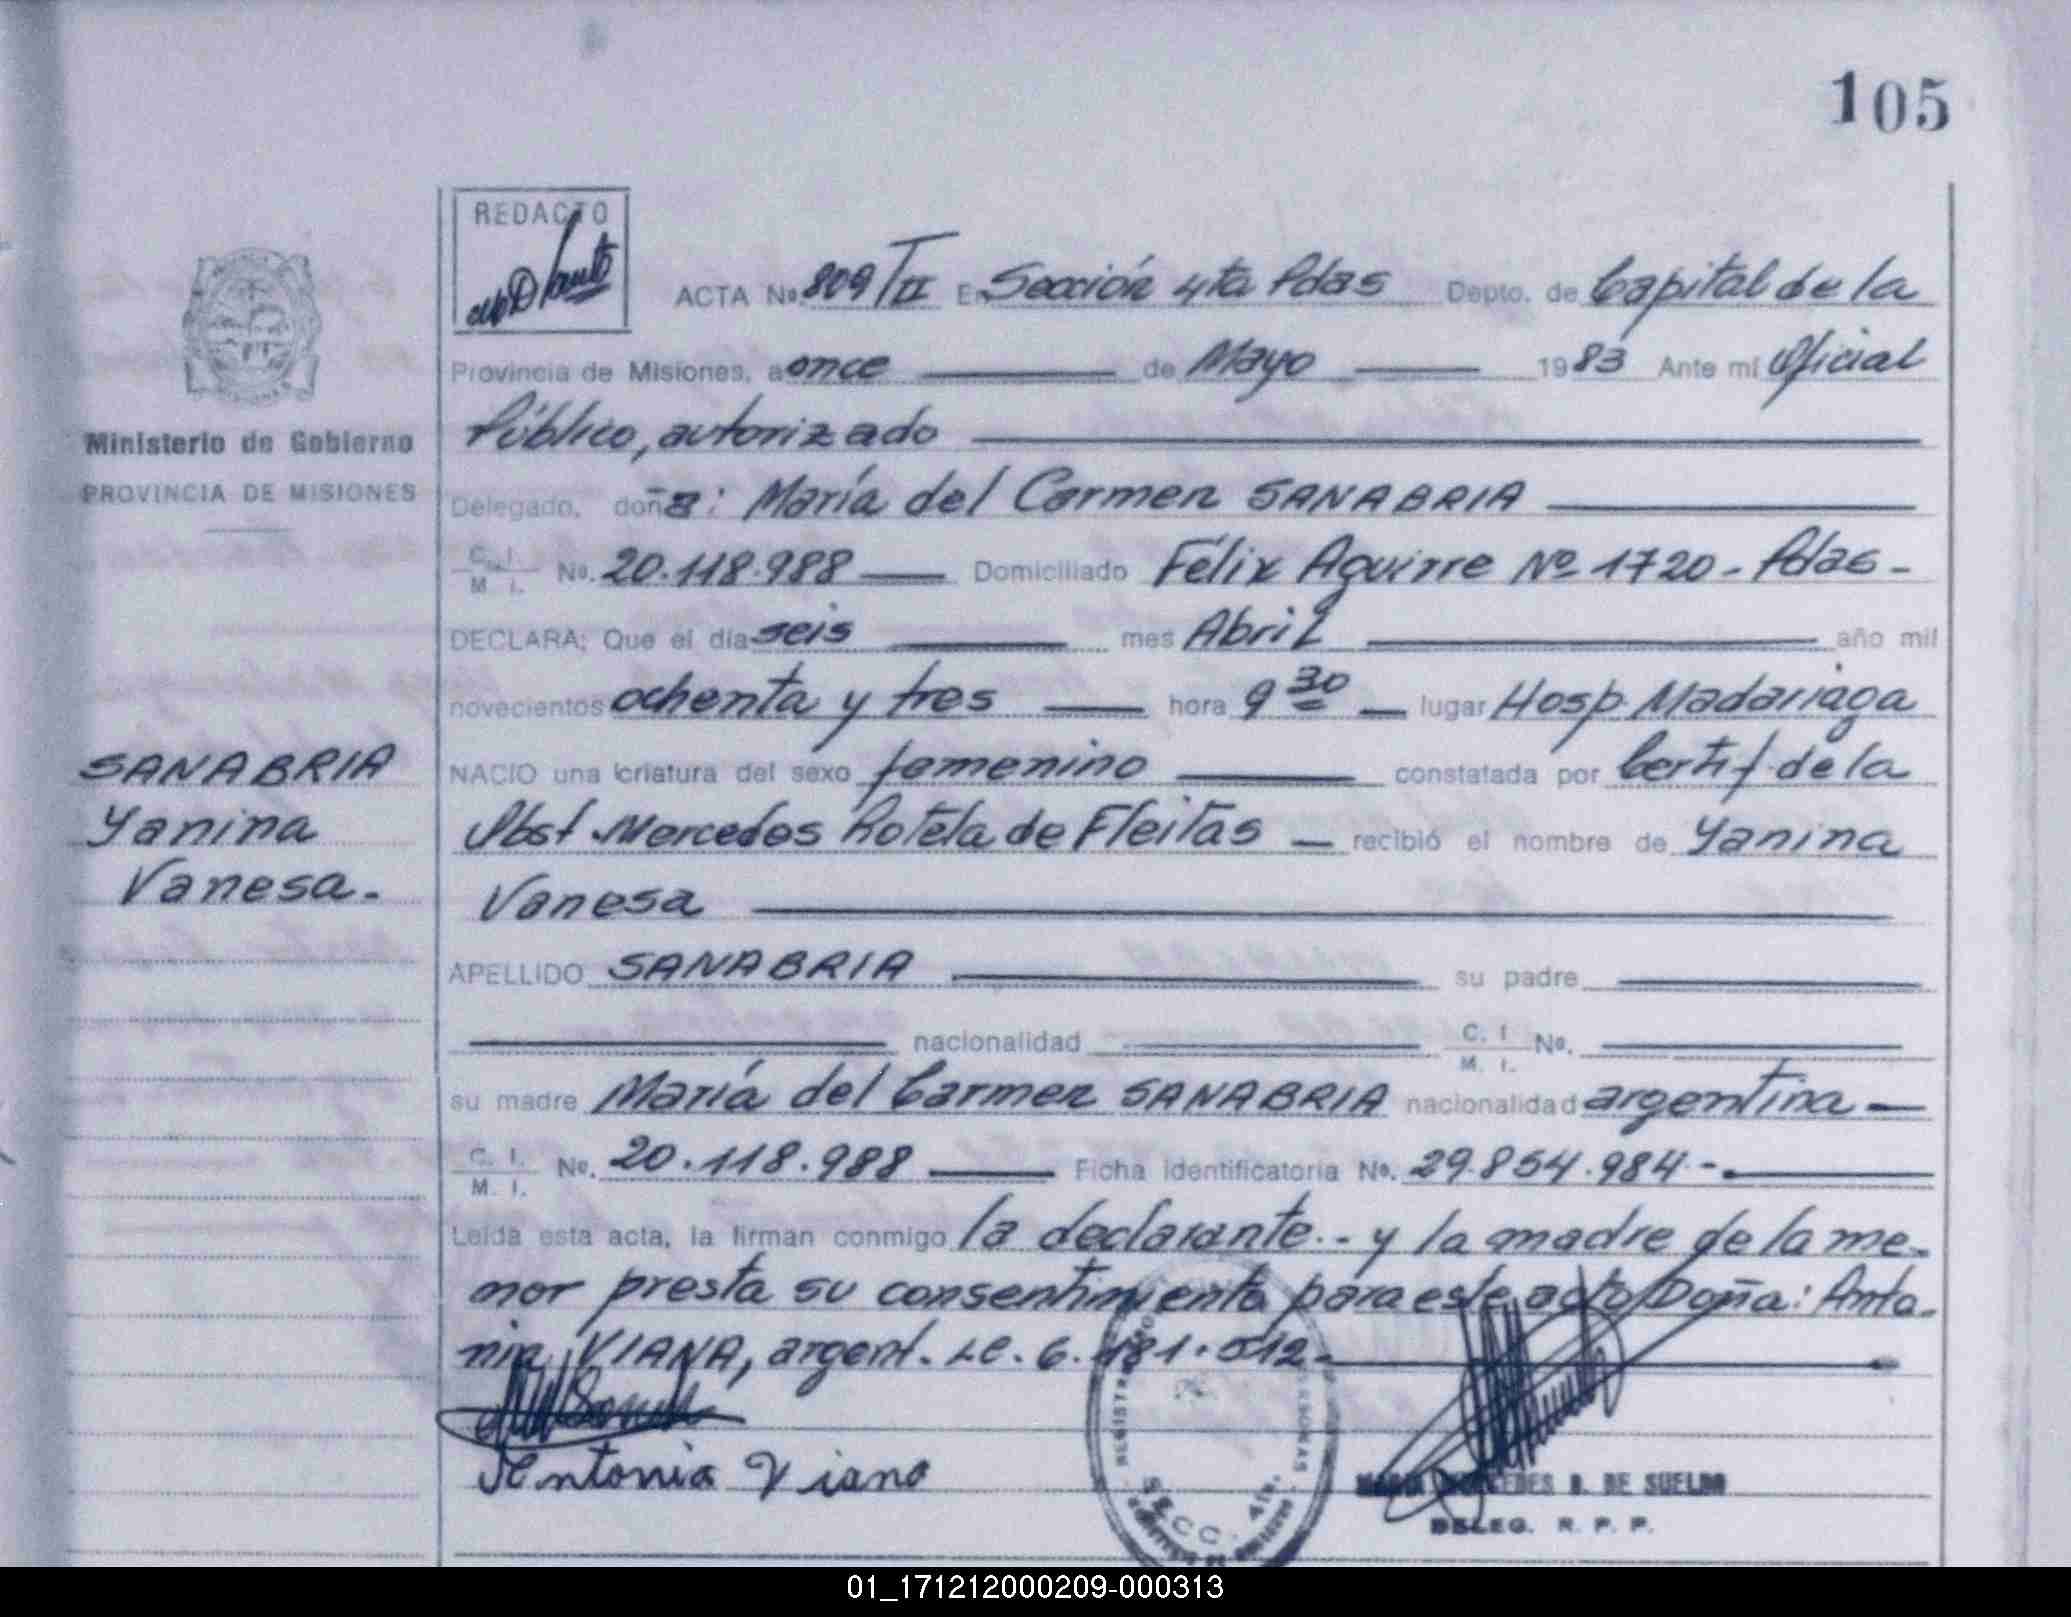 105
REDACTO
ACTA No. 809/II En Sección 4ta Pdas Depto. de Capital de la
Provincia de Misiones, a once de Mayo 1983 Ante mí Oficial
Público, autorizado
Ministerio de Gobierno
PROVINCIA DE MISIONES
Delegado, doña: María del Carmen SANABRIA
C. I. / M. I. No. 20.118.988 Domiciliado Félix Aguirre Nº 1720 - Pdas -
DECLARA; Que el día seis mes Abril año mil
novecientos ochenta y tres hora 9 30 lugar Hosp. Madariaga
NACIO una criatura del sexo femenino constatada por Certif. de la
Obst Mercedes Rotela de Fleitas recibió el nombre de Yanina
Vanesa
SANABRIA
Yanina
Vanesa.
APELLIDO SANABRIA su padre
nacionalidad C. I / M. I. No.
su madre María del Carmen SANABRIA nacionalidad argentina
C. I. / M. I. No. 20.118.988 Ficha identificatoria No. 29.854.984.-
Leída esta acta, la firman conmigo la declarante.- y la madre de la me-
nor presta su consentimiento para este acto Doña: Anto-
nia VIANA, argent. LC. 6.181.512-
Antonia Viana
SECC. 4ta.
DE SUELDO
DELEG. R. P. P.
01_171212000209-000313